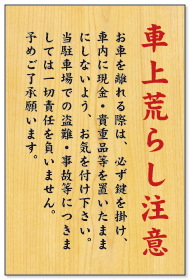 車上荒らし注意
お車を離れる際は、必ず鍵を掛け、
車内に現金・貴重品等を置いたまま
にしないよう、お気を付け下さい。
当駐車場での盗難・事故等につきま
しては一切責任を負いません。
予めご了承願います。